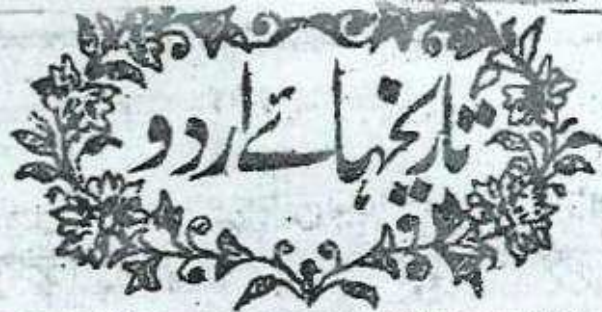 تاریخہائے اردو